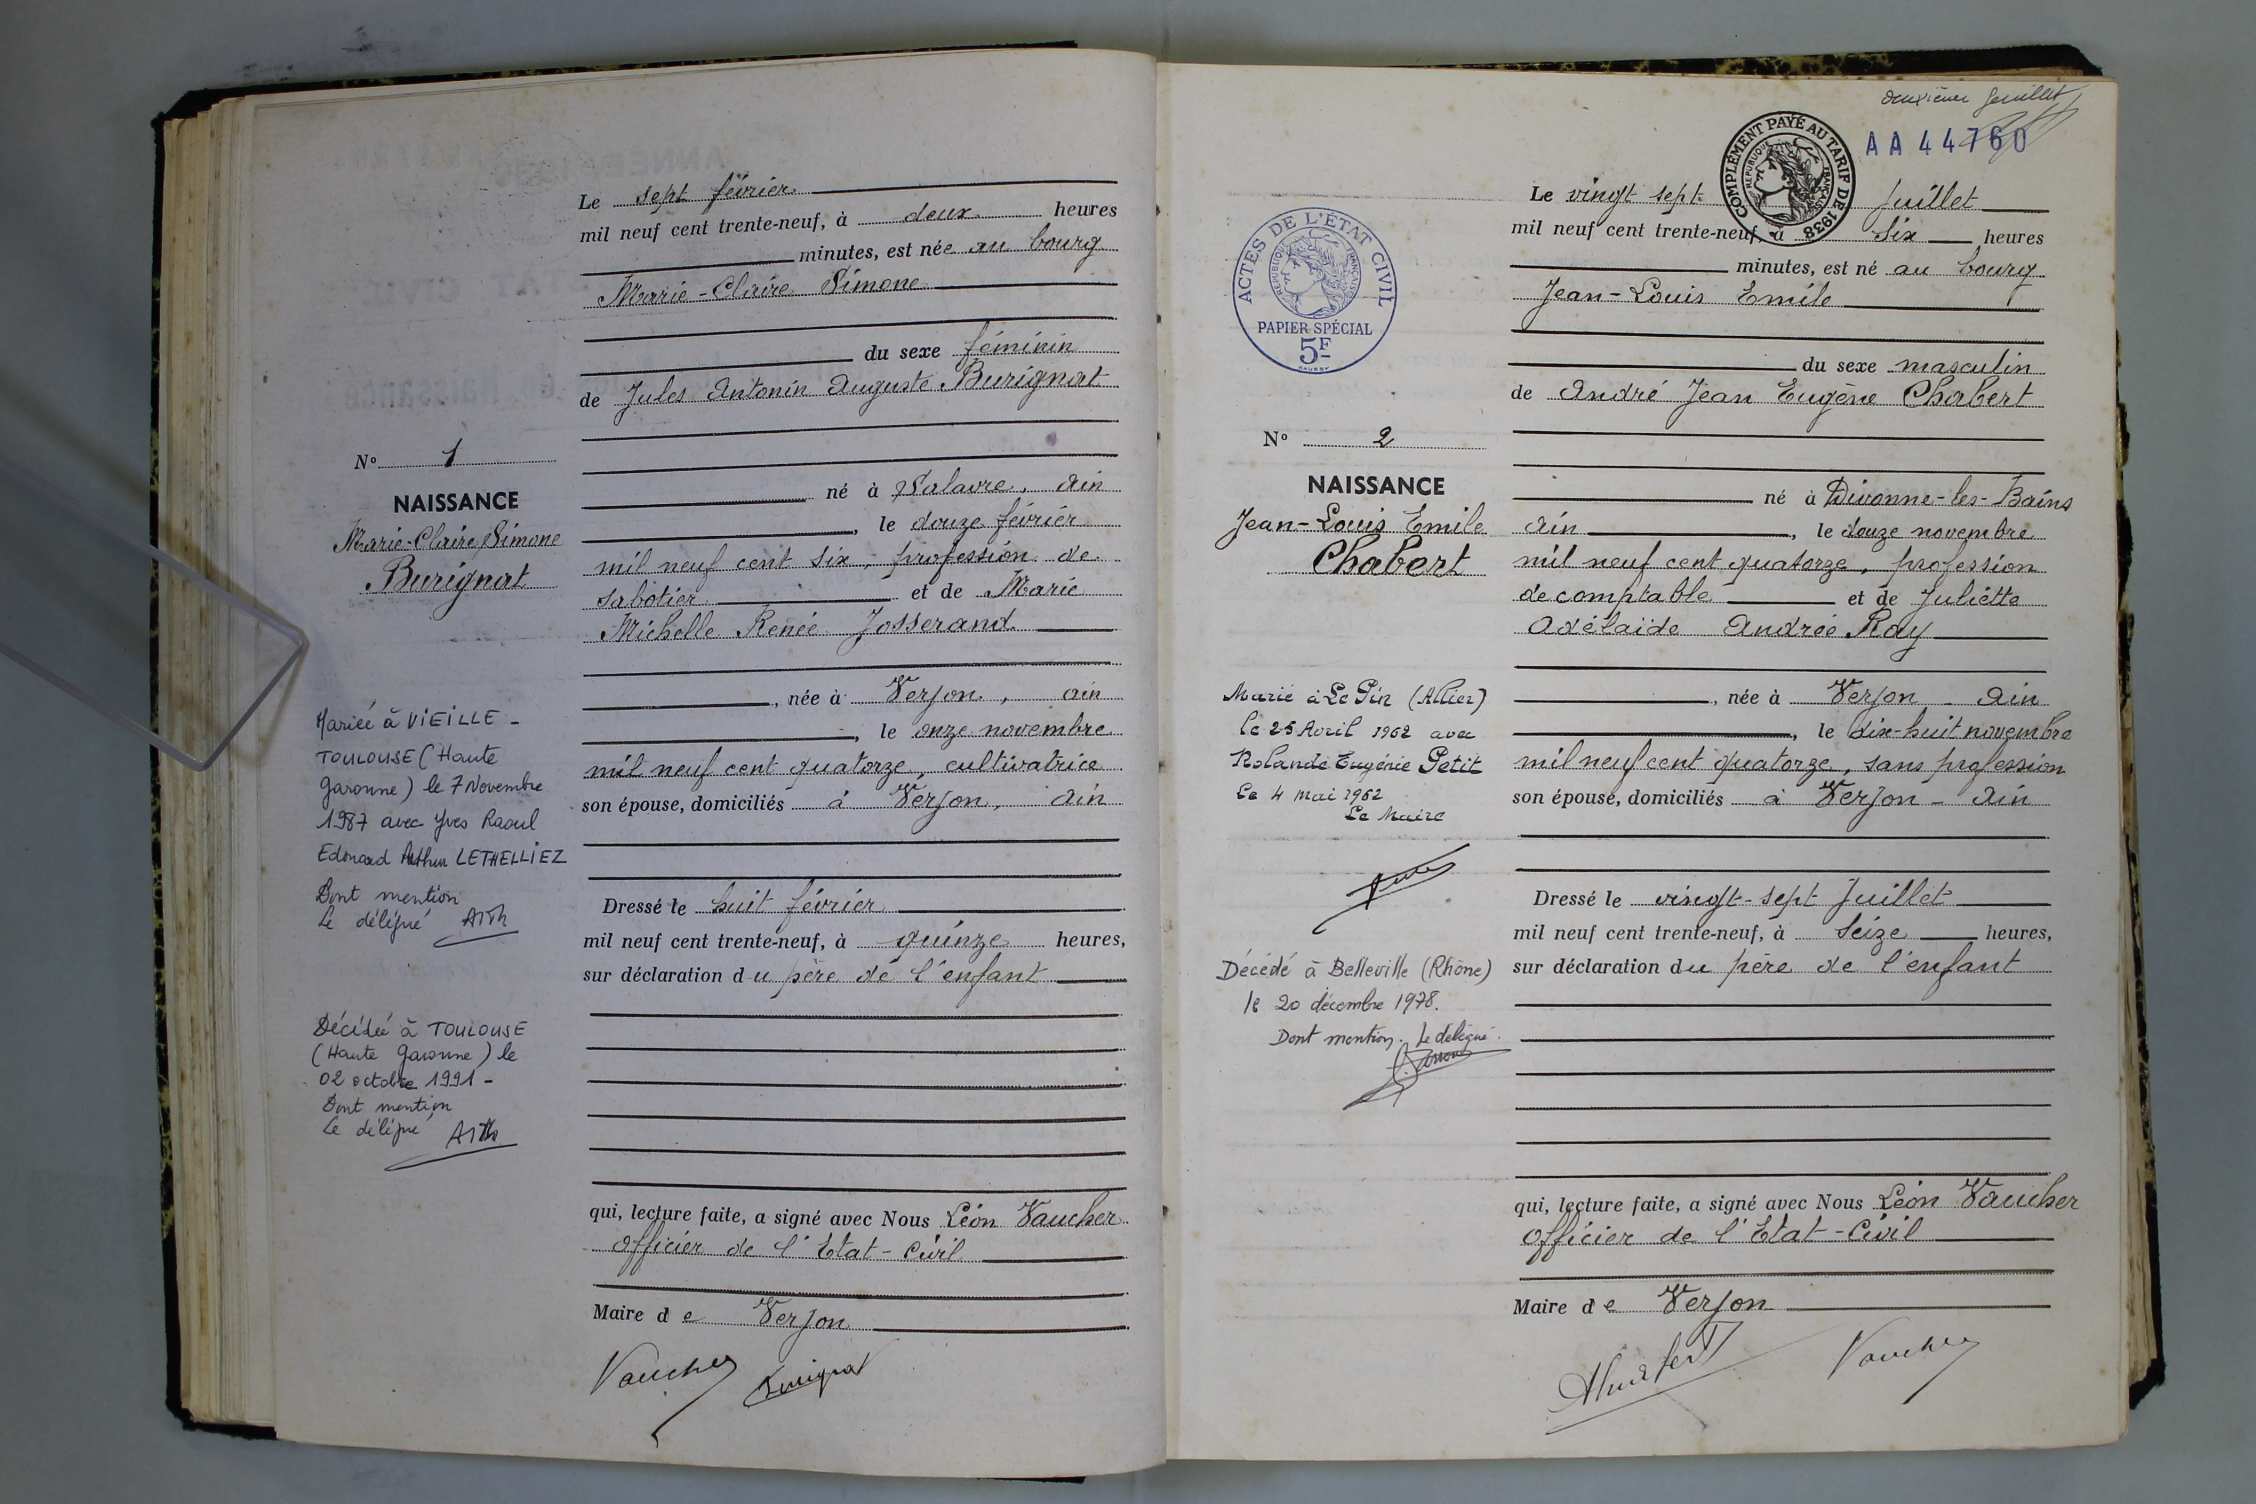 Le sept février
mil neuf cent trente-neuf, à deux heures
minutes, est née au bourg
Marie-Claire Simone
du sexe féminin
de Jules Antonin Auguste Burignat
N° 1
NAISSANCE
Marie-Claire Simone
Burignat
né à Salavre, Ain
, le douze février
mil neuf cent six, profession de
sabotier et de Marie
Michelle Renée Josserand
, née à Verjon, Ain
, le onze novembre
mil neuf cent quatorze, cultivatrice
son épouse, domiciliés à Verjon, Ain
Mariée à VIEILLE-
TOULOUSE (Haute
Garonne) le 7 Novembre
1987 avec Yves Raoul
Edouard Arthur LETHELLIEZ
Dont mention
Le délégué
Dressé le huit février
mil neuf cent trente-neuf, à quinze heures,
sur déclaration du père de l'enfant
Décédée à TOULOUSE
(Haute Garonne) le
02 octobre 1991-
Dont mention
Le délégué
qui, lecture faite, a signé avec Nous Léon Vaucher
officier de l'Etat-Civil
Maire de Verjon
Vaucher Burignat
deuxième feuillet
AA 44760
COMPLÉMENT PAYÉ AU TARIF DE 1938
RÉPUBLIQUE FRANÇAISE
Le vingt sept Juillet
mil neuf cent trente-neuf, à six heures
minutes, est né au bourg
Jean-Louis Emile
du sexe masculin
de André Jean Eugène Chabert
ACTES DE L'ÉTAT CIVIL
RÉPUBLIQUE FRANÇAISE
PAPIER SPÉCIAL
5F
N° 2
NAISSANCE
Jean-Louis Emile
Chabert
né à Divonne-les-Bains
Ain , le douze novembre
mil neuf cent quatorze, profession
de comptable et de Juliette
Adélaïde Andrée Ray
, née à Verjon - Ain
, le dix-huit novembre
mil neuf cent quatorze, sans profession
son épouse, domiciliés à Verjon - Ain
Marié à Le Pin (Allier)
le 25 Avril 1962 avec
Rolande Eugénie Petit
Le 4 Mai 1962
Le Maire
Dressé le vingt-sept Juillet
mil neuf cent trente-neuf, à seize heures,
sur déclaration du père de l'enfant
Décédé à Belleville (Rhône)
le 20 décembre 1978.
Dont mention. Le délégué.
qui, lecture faite, a signé avec Nous Léon Vaucher
officier de l'Etat-Civil
Maire de Verjon
Chabert Vaucher